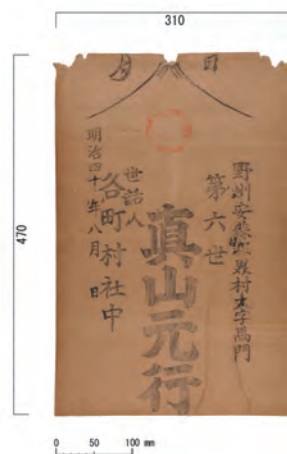 310
470
日
月
野州安蘇郡界村大字馬門
第六世
真山元行
世話人
各町村社中
明治四十年八月 日
0 50 100 mm